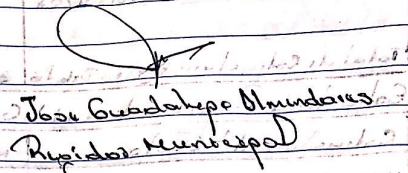 Jose Guadalupe Almendares
Regidor Municipal